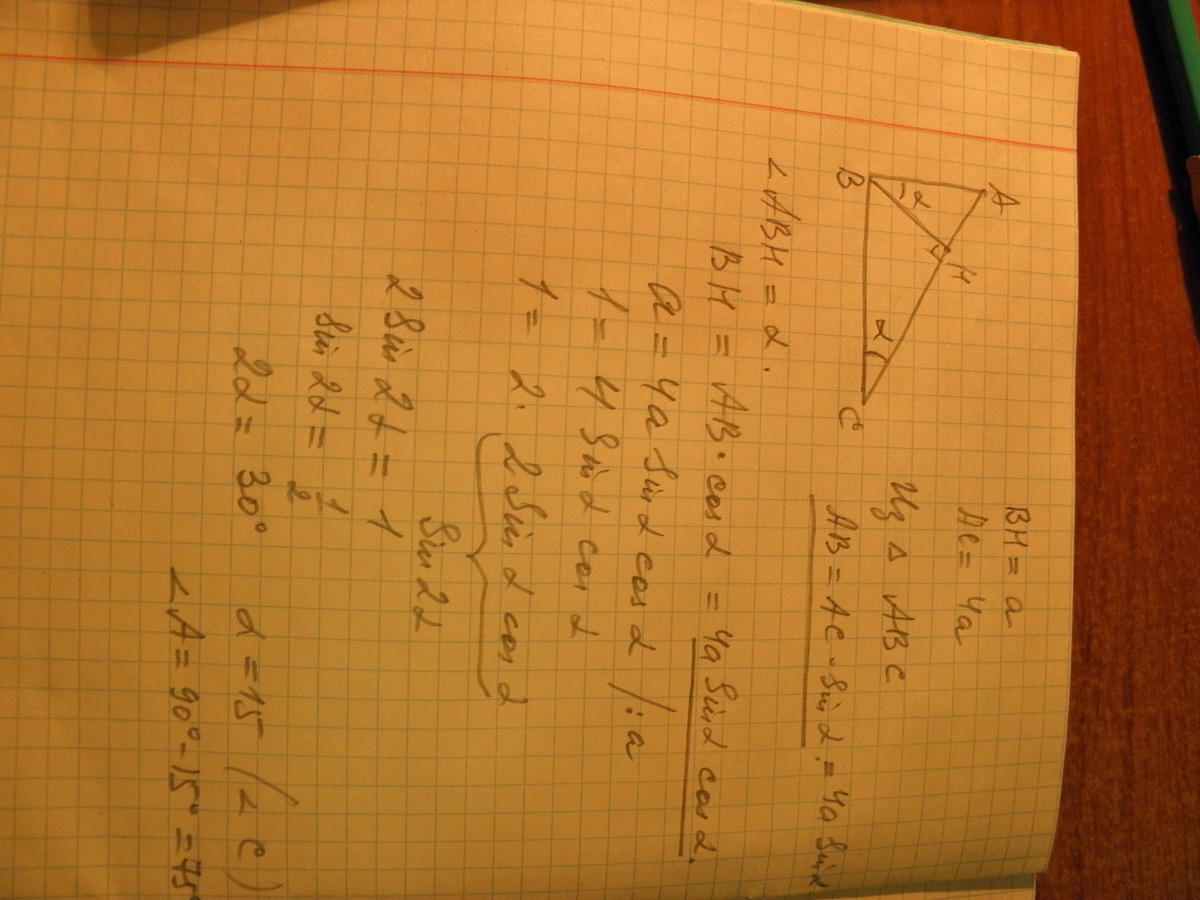 A
H
B
C
α
α
BH = a
AC = 4a
Из Δ ABC
AB = AC · Sin α = 4a Sin α
∠ ABH = α.
BH = AB · cos α = 4a Sin α cos α.
a = 4a Sin α cos α / : a
1 = 4 Sin α cos α
1 = 2 · 2 Sin α cos α
Sin 2α
2 Sin 2α = 1
Sin 2α = 1/2
2α = 30° α = 15 (∠ C)
∠ A = 90° - 15° = 75°